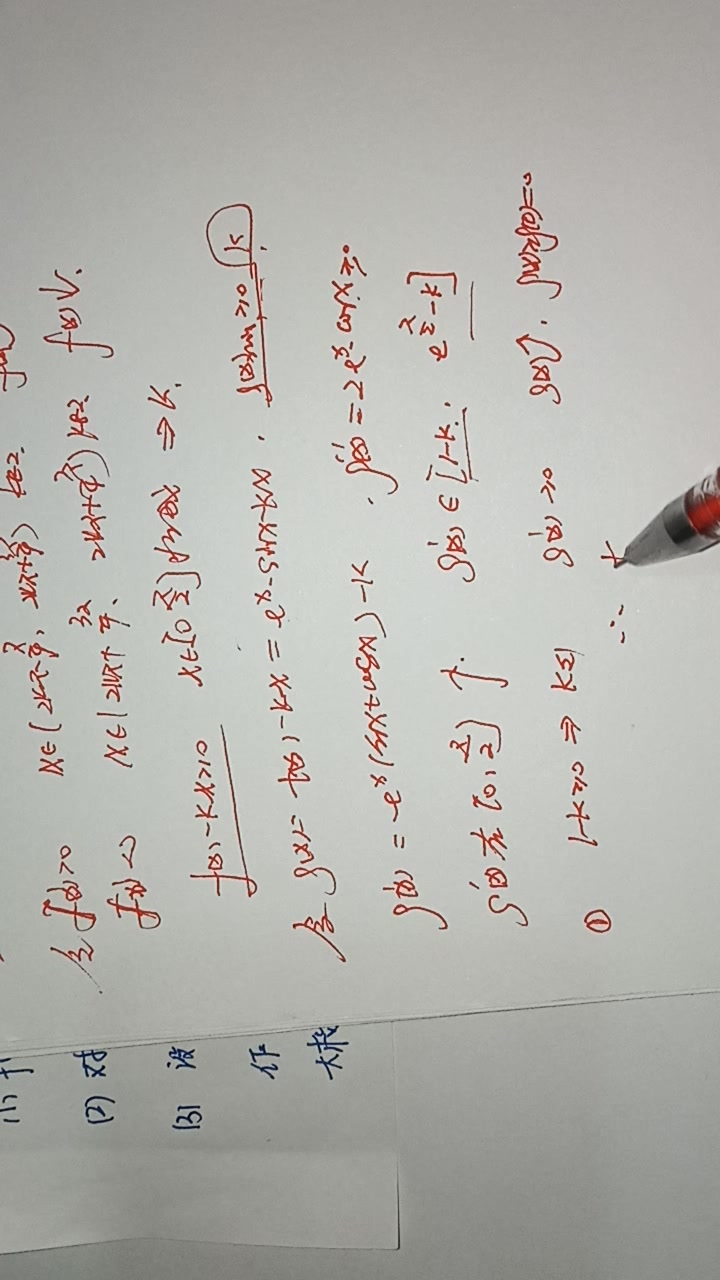 令 f'(x)>0 x∈(2kπ-π/4, 2kπ+3π/4) k∈Z.
f'(x)<0 x∈(2kπ+3π/4, 2kπ+ k∈Z f(x)↓.
f(x)-kx≥0 x∈[0 π/2] 恒成立 ⇒k.
令 g(x)=f(x)-kx=e^x·sinx-kx. g(x)min≥0 k.
g'(x)=e^x(sinx+cosx)-k . g''(x)=2e^x·cosx≥0
g'(x)在[0,π/2]↑. g'(x)∈[1-k. e^(π/2)-k]
① 1-k≥0 ⇒ k≤1 g'(x)≥0 g(x)↑. g(x)min=g(0)=0
∴
(2) 对
(3) 设
作